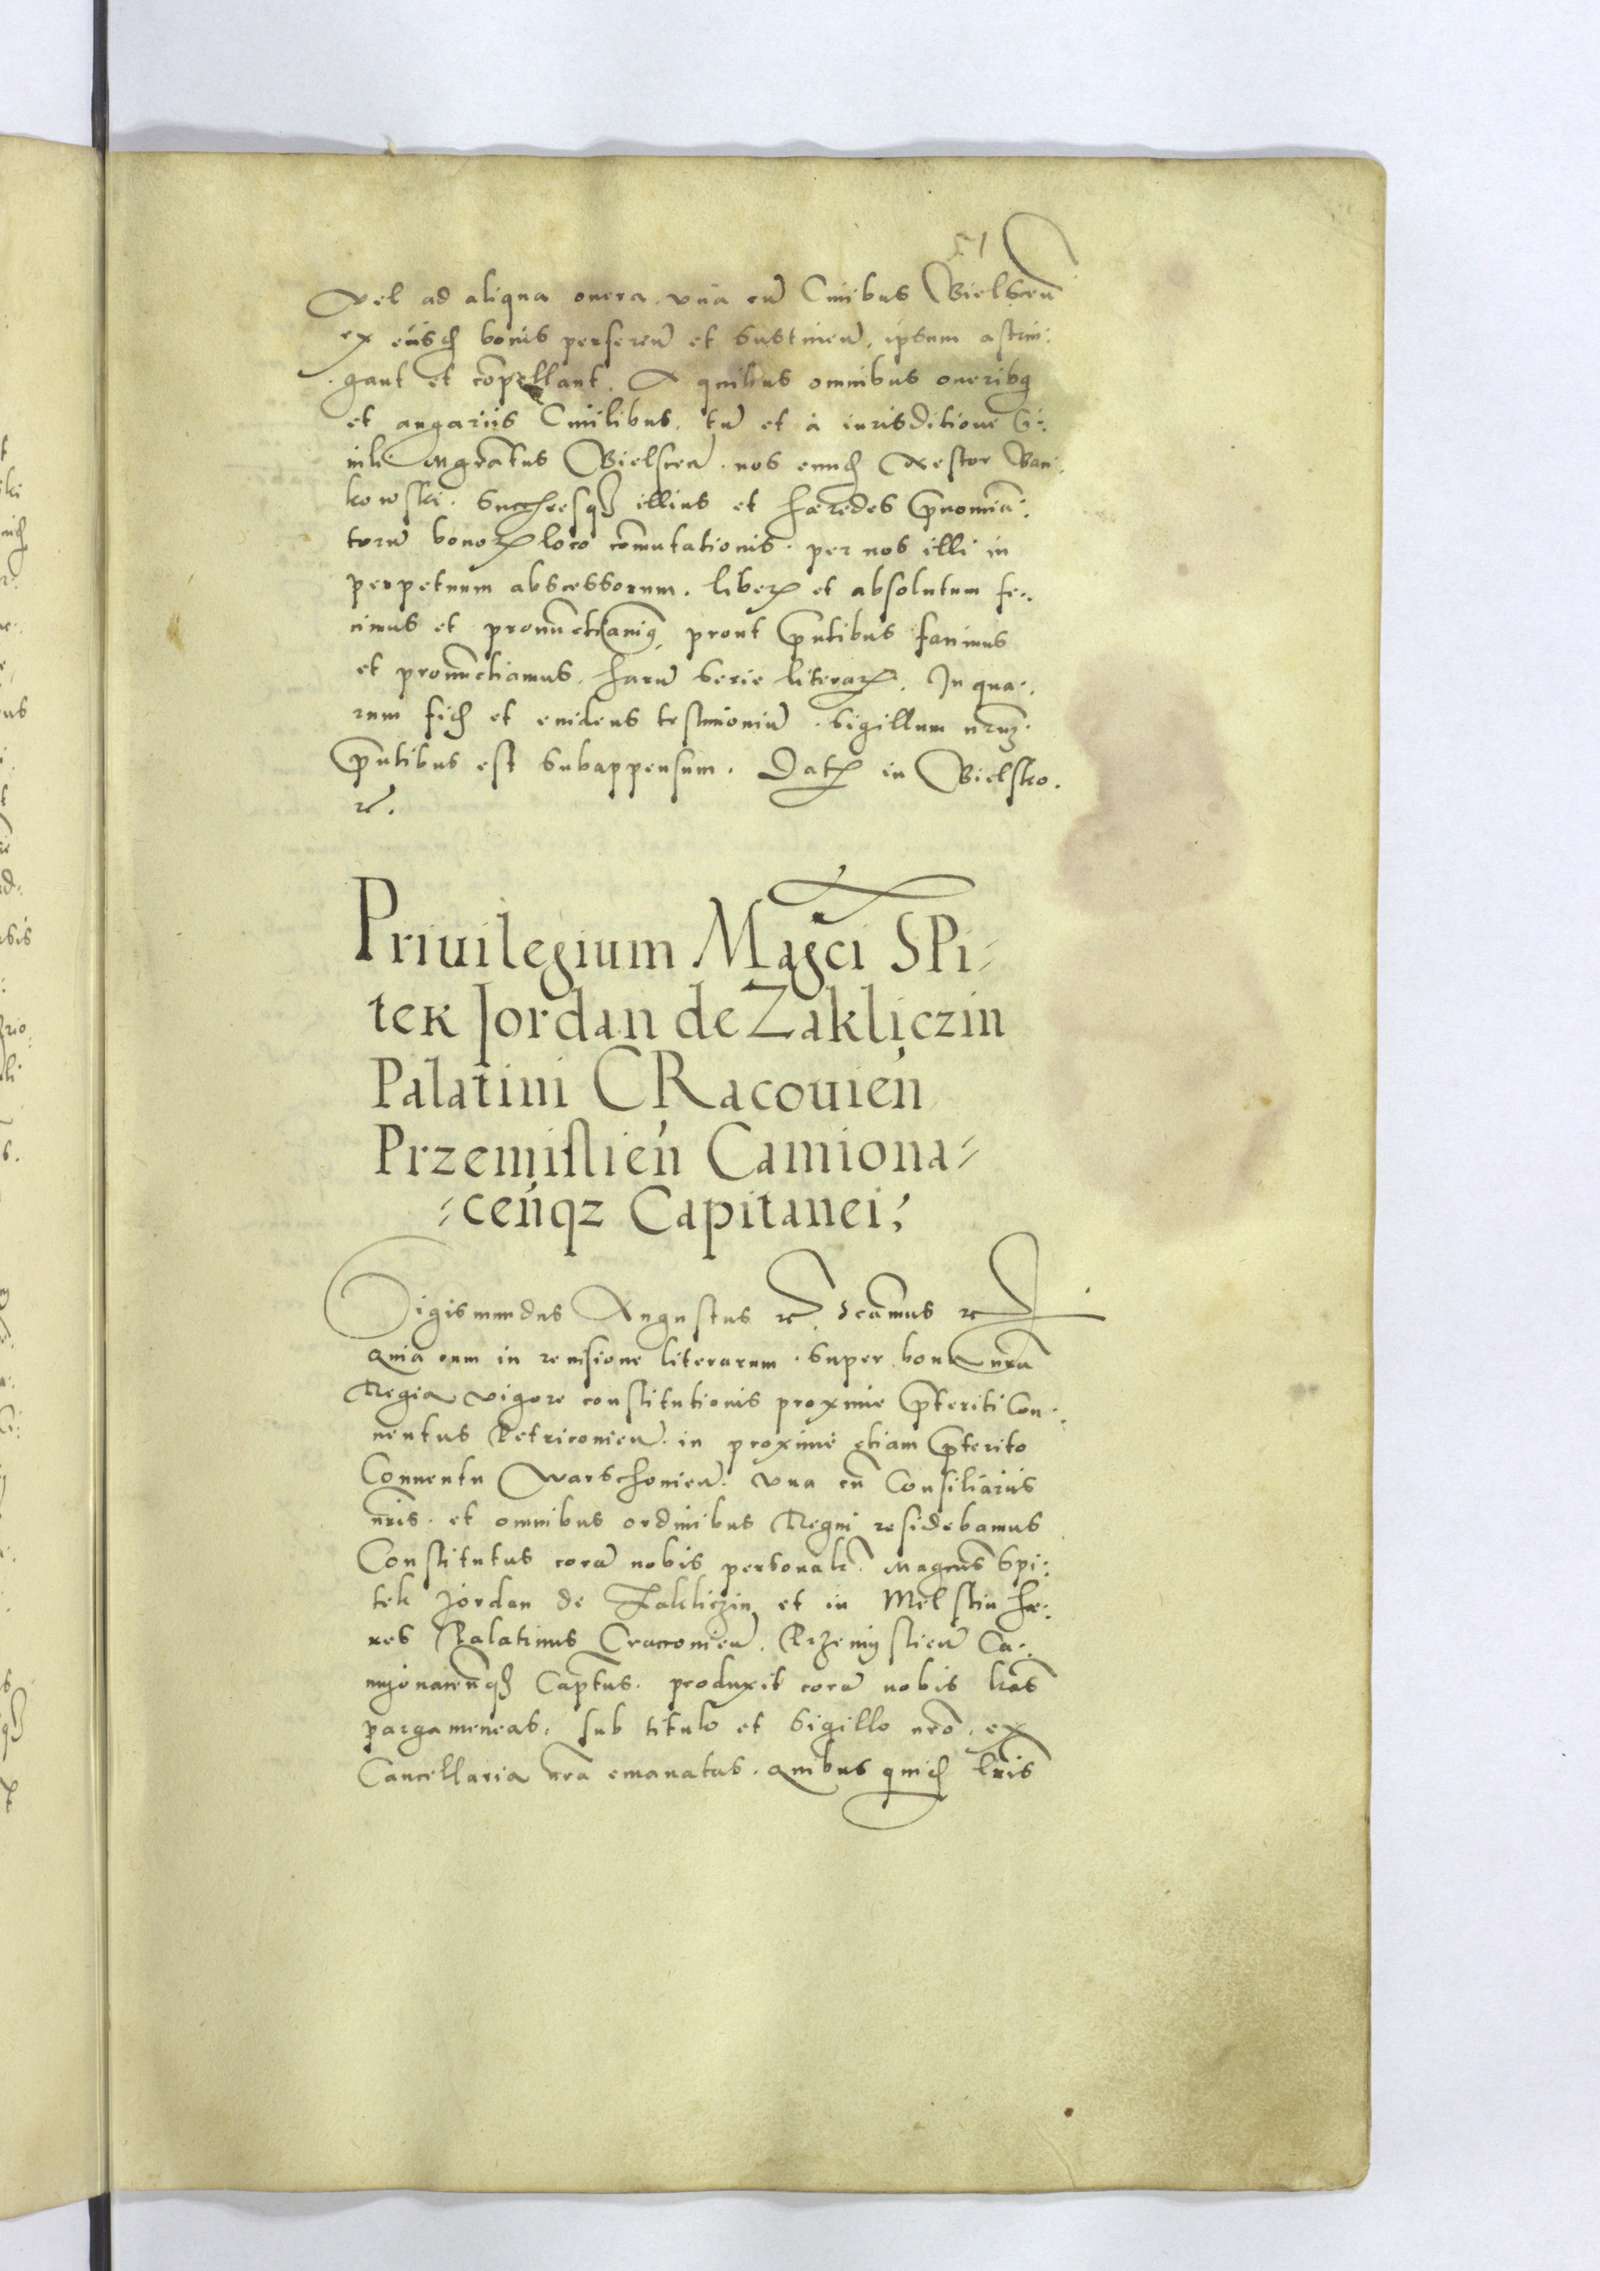 51
Vel ad aliqua onera vna cũ Ciuibus Bielsceñ
ex eiisdẽ bonis perfereñ et sustineñ, ipsum astrin:
gant et cõpellant. A quibus omnibus oneribq
et angariis Ciuilibus, tũ et à iurisditione Ci:
uili Mgrãtus Bielsceñ. nos eundẽ Nestor Ban:
kowski. succẽesqʒ illius et hæredes p̃nomina:
torũ bonoꝝ loco cõmutationis. per nos illi in
perpetuum abscessorum. liberꝝ et absolutum fe:
cimus et pronũctiauimꝯ, prout p̃ntibus facimus
et pronunctiamus. harũ serie literaꝝ. In qua:
rum fidẽ et euidens testimoniũ. Sigillum nrũʒ
p̃ntibus est subappensum. Datꝝ in Bielsko.
ꝛc.
Priuilegium Magci SPi=
tek Jordan de Zakliczin
Palatini CRacouień
Przemislień Camiona=
=ceńqz Capitanei;
Sigismundus Augustus ꝛc. Scãmus ꝛc
Quia cum in reuisione literarum. super bona nrã
Regia vigore constitutionis proxime p̃teriti Con:
uentus Petricouieñ. in proximè etiam p̃terito
Conuentu Warschouieñ. vna cũ Consiliariis
nr̃is. et omnibus ordinibus Regni residebamus
Constitutus corã nobis personalr̃. Magcus Spi:
tek Jordan de Zakliczin et in Melstin hæ:
res Palatinus Cracouieñ. Przemislieñ Ca:
mionaceñqʒ Capt̃us. produxit corã nobis lr̃as
pargameneas. sub titulo et Sigillo nrõ. ex
Cancellaria nrã emanatas. Quibus quidẽ lr̃is